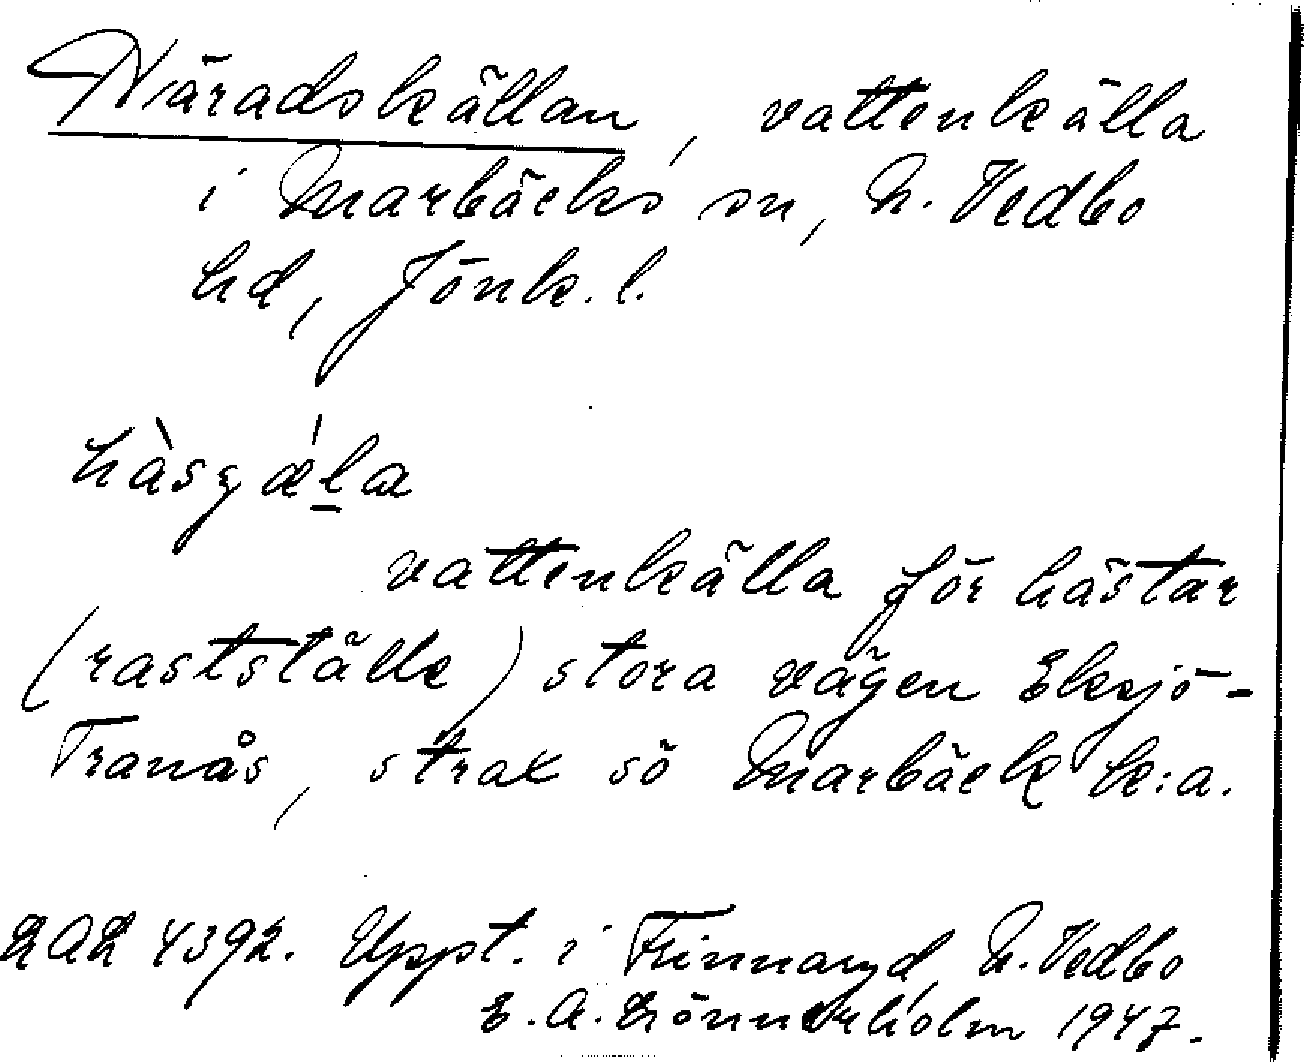 Häradskällan, vattenkälla
i Marbäcks sn, N. Vedbo
hd, Jönk. l.
vattenkälla för hästar
(rastställe) stora vägen Eksjö-
Tranås, strax sö Marbäck k:a.
4392. Uppt. i Frinnaryd, N. Vedbo
E. A. Lönnerholm 1947.